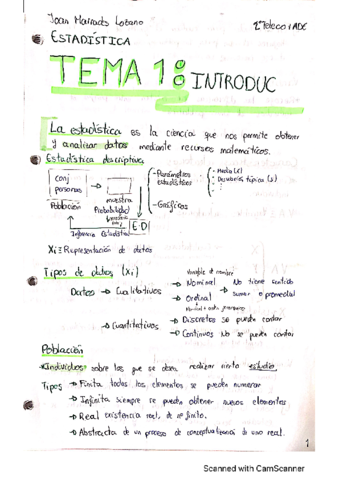 Joan Marrades Lozano
2º Teleco + ADE
ESTADÍSTICA
TEMA 1: INTRODUC
La estadística es la ciencia que nos permite obtener
y analizar datos mediante recursos matemáticos.
Estadística descriptiva
conj personas
Población
muestra
Probabilidad
E.D
Inferencia Estadística
- Parámetros estadísticos
- Gráficos
Xi ≡ Representación de datos
Tipos de datos (Xi)
Datos → Cualitativos
→ Nominal No tiene sentido
→ Ordinal sumar o promediar
→ Cuantitativos
→ Discretos Se puede contar
→ Continuos No se puede contar
Población
Individuos sobre los que se desea realizar cierto estudio
Tipos → Finita todos los elementos se pueden numerar
→ Infinita siempre se pueden obtener nuevos elementos
→ Real existencia real, de nº finito.
→ Abstracta de un proceso de conceptualización de uno real.
1
Scanned with CamScanner